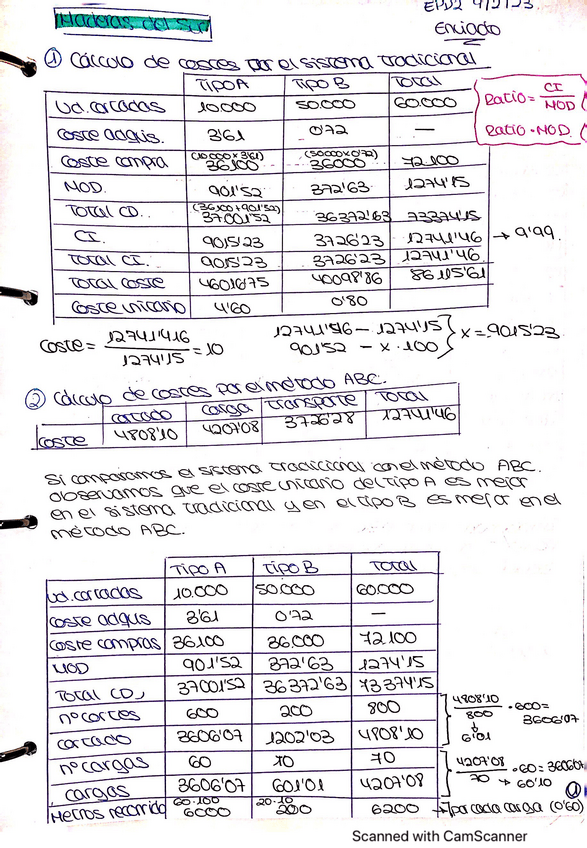 Maderas del Sur
EPD2 9/2/23
Enviado
① Cálculo de costes por el sistema tradicional
Tipo A Tipo B Total
Ud. cortadas 10.000 50.000 60.000
Coste adquis. 3'61 0'72 —
Coste compra (10000x3'61) 36100 (50000x0'72) 36000 72.100
MOD. 901'52 372'63 1274'15
Total CD. (36.100+901'52) 37001'52 36372'63 73374'15
CI. 9015'23 3726'23 12741'46 → 9'99.
Total CI. 9015'23 3726'23 12741'46.
Total coste 46016'75 40098'86 86115'61
Coste unitario 4'60 0'80
Ratio = CI / MOD
Ratio · MOD
Coste = 12741'416 / 1274'15 = 10
12741'46 — 1274'15
901'52 — x · 100 } x = 9015'23
② Cálculo de costes por el método ABC.
cortado carga transporte Total
Coste 4808'10 4207'08 3726'28 12741'46
Si comparamos el sistema tradicional con el método ABC.
observamos que el coste unitario del tipo A es mejor
en el sistema tradicional y en el tipo B es mejor en el
método ABC.
Tipo A Tipo B Total
Ud. cortadas 10.000 50.000 60.000
Coste adquis 3'61 0'72 —
Coste compras 36.100 36.000 72.100
MOD 901'52 372'63 1274'15
Total CD, 37001'52 36372'63 73374'15
nº cortes 600 200 800
cortado 3606'07 1202'03 4808'10
4808'10 / 800 · 600 = 3606'07
6'01
nº cargas 60 10 70
cargas 3606'07 601'01 4207'08
4207'08 / 70 · 60 = 3606'07
→ 60'10
①
Metros recorrido 60·100 6000 20·10 200 6200 → por cada carga (0'60)
Scanned with CamScanner